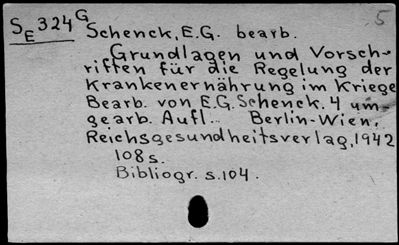 5
SE 324 G
Schenck, E.G. bearb.
Grundlagen und Vorsch-
riften für die Regelung der
Krankenernährung im Kriege
Bearb. von E.G. Schenck. 4 um-
gearb. Aufl. Berlin-Wien,
Reichsgesundheitsverlag, 1942
108 s.
Bibliogr. s. 104.